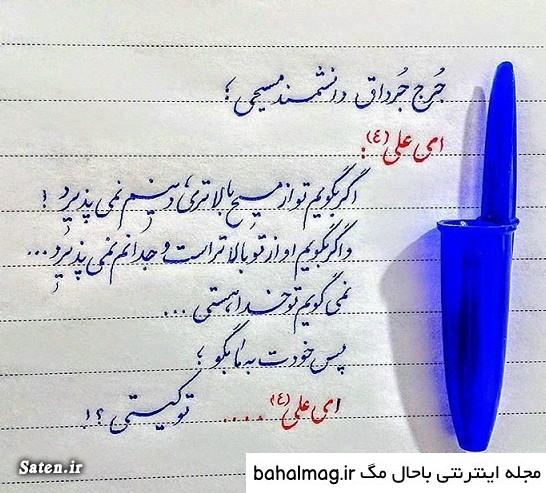 جُرج جُرداق دانشمند مسیحی ؛
ای علی (ع) :
اگر بگویم تو از مسیح بالاتری، دینم نمی پذیرد !
و اگر بگویم او از تو بالاتر است وجدانم نمی پذیرد ...
نمی گویم تو خدا هستی ...
پس خودت به ما بگو ؛
ای علی (ع) .... تو کیستی ؟!
Saten.ir
مجله اینترنتی باحال مگ bahalmag.ir